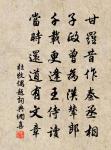 甘羅昔作秦丞相
子政曾為漢輦郎
千載更逢王侍讀
當時還道有文章
杜牧偶題詞典網